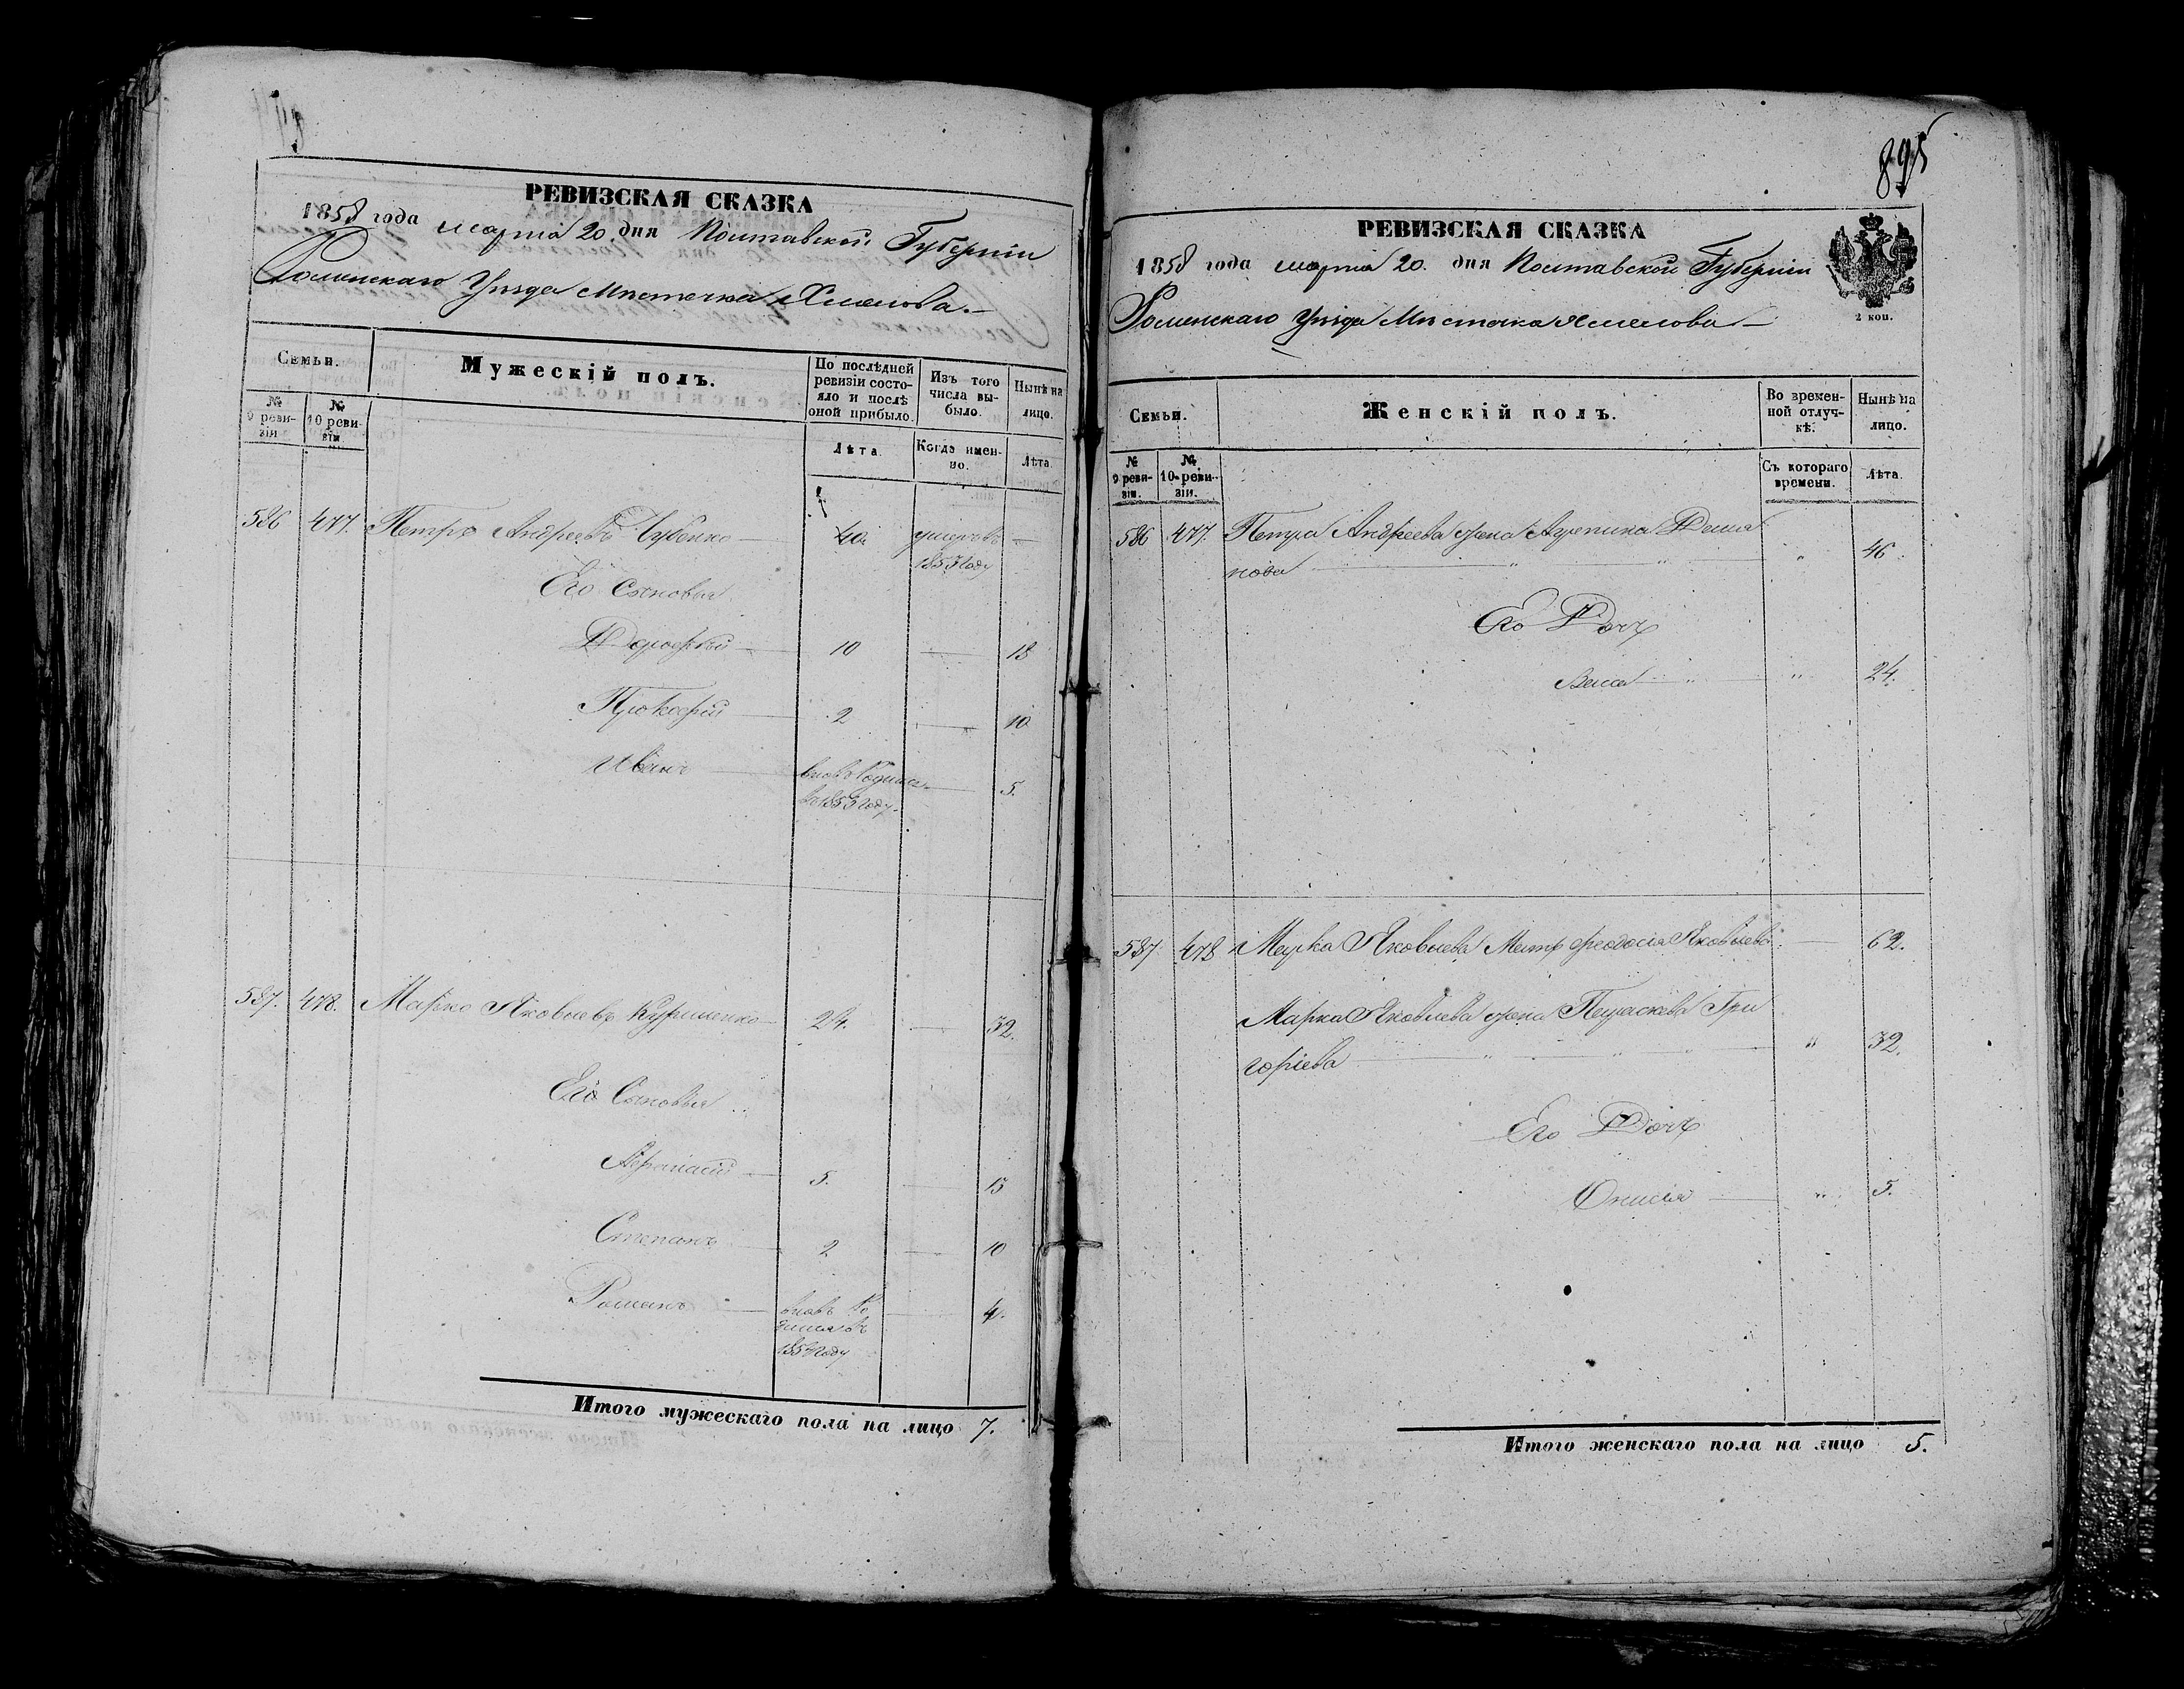 РЕВИЗСКАЯ СКАЗКА
1858 года марта 20. дня Полтавской Губернiи
Роменскаго Уѣзда Мѣстечка Хмелова.
Семьи.
Мужескiй полъ.
По послѣдней ревизiи состояло и послѣ оной прибыло.
Изъ того числа выбыло.
Нынѣ на лицо.
№ 9 ревизiи
№ 10 ревизiи
Лѣта.
Когда именно.
Лѣта.
586 477. Петръ Андреевъ Чубенко 40 умеръ въ —
1853 году
Его Сыновья
Дорофѣй — 10 — 18
Прокофiй — 2 — 10
Иванъ — вновь родился — 5.
въ 1853 году.
587. 478. Марко Яковлевъ 24. — 32.
Его Сыновья
Афанасiй 5. — 15
Степанъ 2 — 10
Романъ — вновь ро — 4.
дился въ
году
Итого мужескаго пола на лицо 7.
895
РЕВИЗСКАЯ СКАЗКА
1858 года марта 20. дня Полтавской Губернiи
Роменскаго Уѣзда Мѣстечка Хмелова —
2 коп.
Семьи.
Женскiй полъ.
Во временной отлучкѣ.
Нынѣ на лицо.
№ 9 ревизiи.
№ 10 ревизiи.
Съ котораго времени.
Лѣта.
586 477. Петра Андреева жена Агрепина Демя
нова — " — " — " 46
Его Дочь
" — " 24.
587. 478 Марка Яковлева Мать Феодосiя Яковлева — 62.
Марка Яковлева жена Параскева Гри
горiева — " " " " 32.
Его Дочь
— " 5.
Итого женскаго пола на лицо 5.